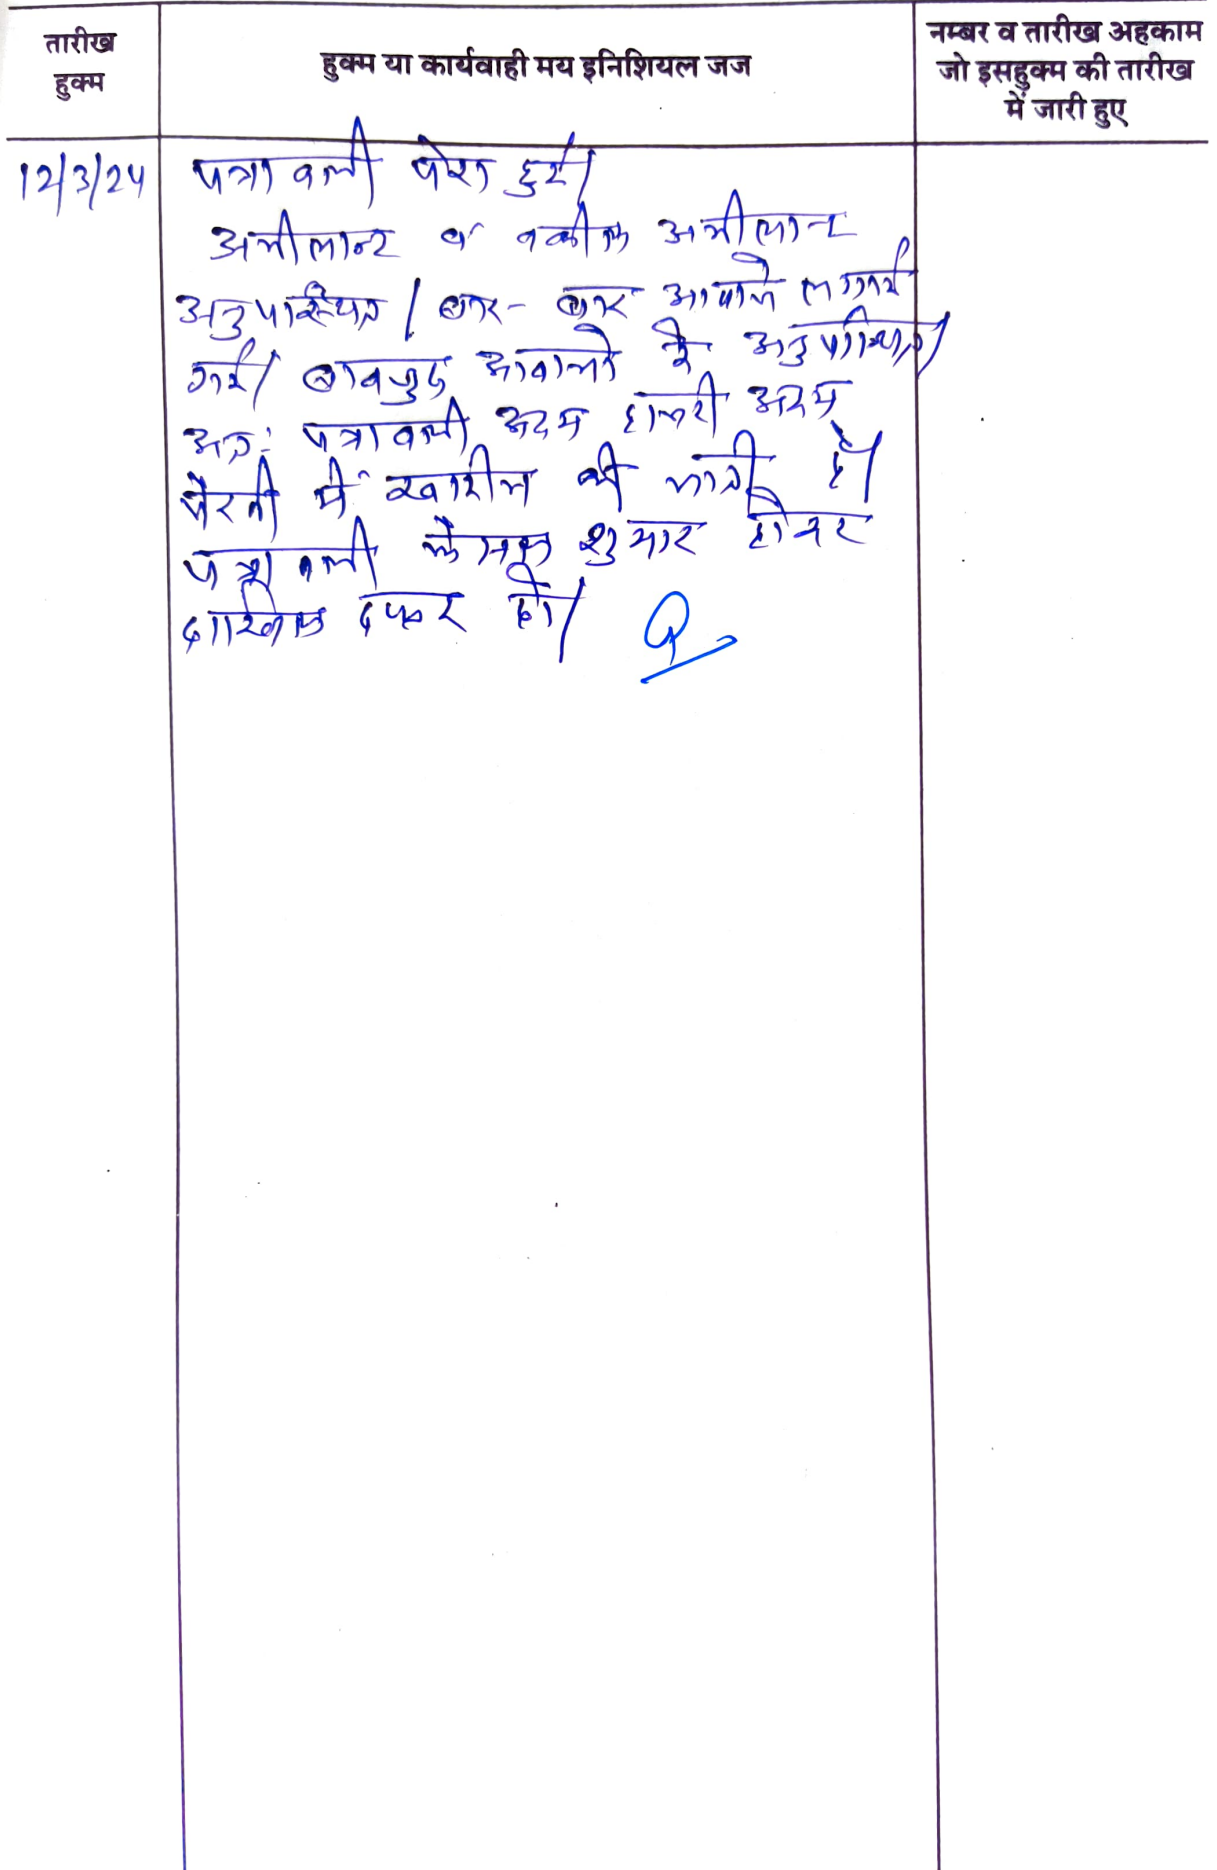 तारीख
हुक्म
हुक्म या कार्यवाही मय इनिशियल जज
नम्बर व तारीख अहकाम
जो इसहुक्म की तारीख
में जारी हुए
12/3/24
पत्रावली पेश हुई।
अपीलान्ट व वकील अपीलान्ट
अनुपस्थित। बार-बार आवाजे लगाई
गई। बावजुद आवाजो के अनुपस्थित।
अतः पत्रावली अदम हाजरी अदम
पैरवी में खारीज की जाती है।
पत्रावली फैसल शुमार होकर
दाखिल दफ्तर हो।